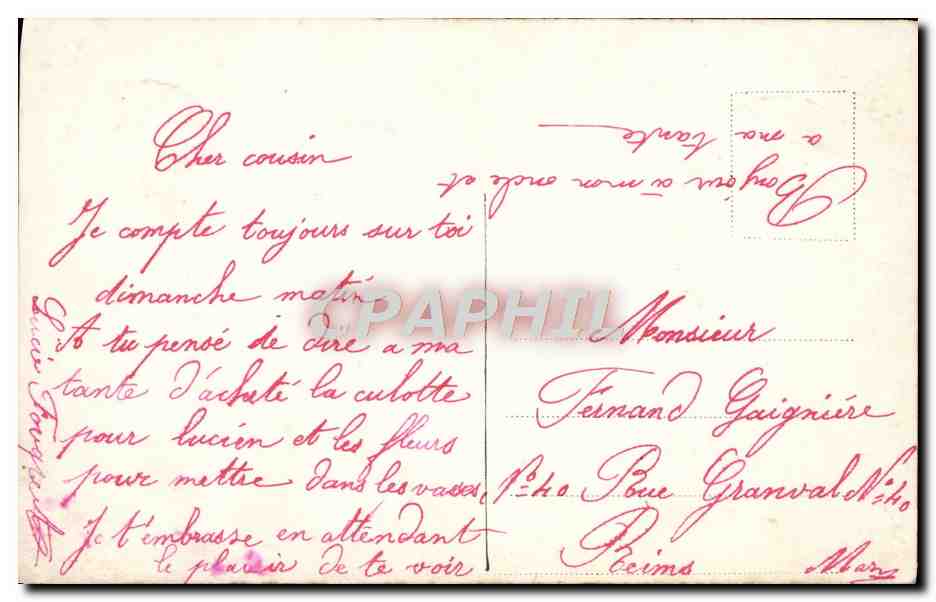 Cher cousin
Je compte toujours sur toi
dimanche matin
A tu pensé de dire a ma
tante d'acheté la culotte
pour lucien et les fleurs
pour mettre dans les vasses,
Je t'embrasse en attendant
le plaisir de te voir
Lucie
Bonjour a mon oncle et
a ma tante
Monsieur
Fernand Gaigniére
N°40 Rue Granval N°40
Reims
CPAPHIL